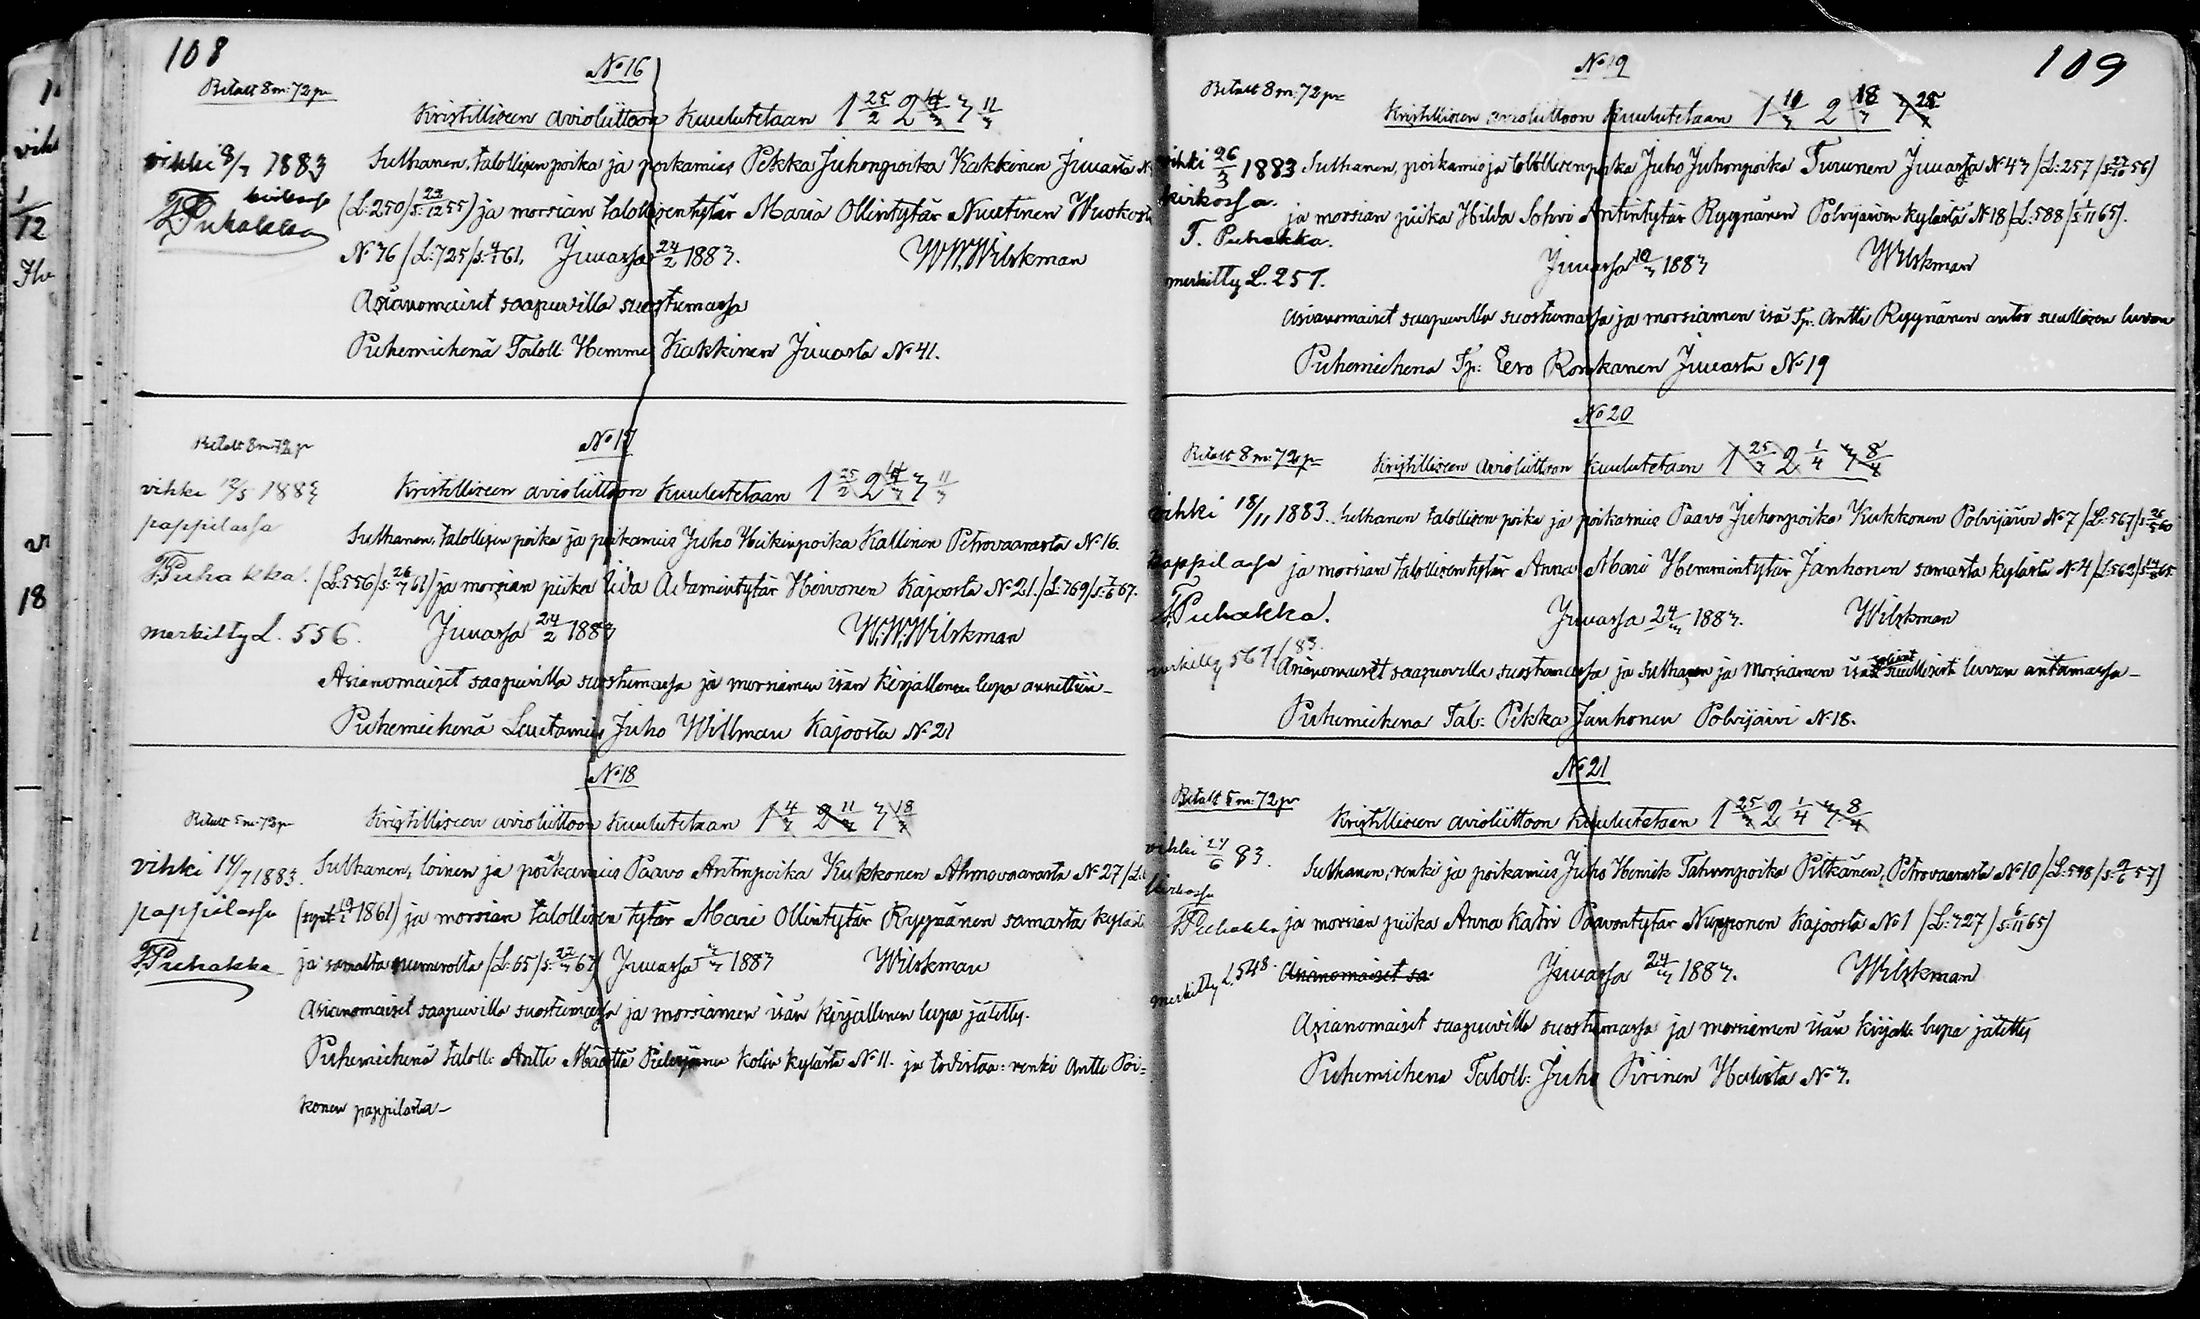 108
No 16
Betalt 8 m: 72 p
Kristilliseen avioliittoon kuulutetaan 1 25/2 2 4/3 3 11/3
vihki 8/7 1883
Sulhanen, talollisen poika ja poikamies Pekka Juhonpoika Kakkinen Juuasta N
kirkossa
(L: 250/s: 23/12 55) ja morsian talollisen tytär Maria Ollintytär Nuutinen Wuokosta
T Puhakka
No 36 /L: 725/s: 4/4 61. Juuassa 24/2 1883. W.W. Wilskman
Asianomaiset saapuvilla suostumassa
Puhemiehenä Taloll: Hemme Kakkinen Juuasta No 41.
No 17
Betalt 8 m 72 p
Kristilliseen avioliittoon kuulutetaan 1 25/2 2 4/3 3 11/3
vihki 12/5 1883
pappilassa
Sulhanen, talollisen poika ja poikamies Juho Heikinpoika Kallinen Petrovaarasta No 16.
T. Puhakka.
(L: 556/s: 26/7 61) ja morsian piika Iida Adamintytär Heivonen Kajoosta No 21. /L: 769/s: 7/6 67.
merkitty L. 556.
Juuassa 24/2 1883 W.W. Wilskman
Asianomaiset saapuvilla suostumassa ja morsiamen isän kirjallinen lupa annettiin -
Puhemiehenä Lautamies Juho Willman Kajoosta No 21
No 18
Betalt 5 m 72 p
Kristilliseen avioliittoon kuulutetaan 1 4/3 2 11/3 3 18/3
vihki 14/7 1883.
Sulhanen, loinen ja poikamies Paavo Antinpoika Kukkonen Ahmovaarasta No 27 /L:
pappilassa
(synt: 19/2 1861) ja morsian talollisen tytär Mari Ollintytär Ryynänen samasta kylästä
T Puhakka
ja samalta numerolta /L: 65/s: 22/3 63) Juuassa 3/3 1883 Wilskman
Asianomaiset saapuvilla suostumassa ja morsiamen isän kirjallinen lupa jätetty.
Puhemiehenä taloll: Antti Määttä Kolin kylästä No 11. ja todistaa: renki Antti Poi=
konen pappilasta -
109
No 19
Betalt 8 m: 72 p
Kristilliseen avioliittoon kuulutetaan 1 11/3 2 18/3 3 25/3
vihki 26/3 1883
Sulhanen, poikamies ja talollisen poika Juho Juhonpoika Turunen Juuasta No 43 /L: 257/s: 27/10 56)
kirkossa.
ja morsian piika Hilda Sohvi Antintytär Ryynänen Polvijärven kylästä No 18 /L: 588/s: 1/11 65).
T. Puhakka.
Juuassa 10/3 1883 Wilskman
merkitty L. 257.
Asianomaiset saapuvilla suostumassa ja morsiamen isä Tp. Antti Ryynänen antoi suullisen luvan
Puhemiehenä Tp: Eero Ronkanen Juuasta No 19
No 20
Betalt 8 m: 72 p
Kristilliseen avioliittoon kuulutetaan 1 25/3 2 1/4 3 8/4
vihki 18/11 1883.
Sulhanen talollisen poika ja poikamies Paavo Juhonpoika Kukkonen Polvijärvi No 7 /L: 567/s: 26/5 60
pappilassa
ja morsian talollisen tytär Anna Mari Hemmintytär Janhonen samasta kylästä No 4 /L: 562/s: 14/8 65.
T. Puhakka!
Juuassa 24/3 1883. Wilskman
merkitty 567/83.
Asianomaiset saapuvilla suostumassa ja sulhasen ja morsiamen isät suullisesti luvan antamassa -
Puhemiehenä Tal: Pekka Janhonen Polvijärvi No 18.
No 21
Betalt 5 m: 72 p
Kristilliseen avioliittoon kuulutetaan 1 25/3 2 1/4 3 8/4
vihki 24/6 83.
Sulhanen, renki ja poikamies Juho Henrik Tahvonpoika Pitkänen, Petrovaarasta No 10 /L: 548/s: 9/6 57)
kirkossa
T Puhakka
ja morsian piika Anna Katri Paavontytär Nupponen Kajoosta No 1 /L: 727/s: 6/11 65)
merkitty L. 548.
Asianomaiset sa: Juuassa 24/3 1883. Wilskman
Asianomaiset saapuvilla suostumassa ja morsiamen isän kirjall: lupa jätetty
Puhemiehenä Taloll: Juho Pirinen Halista No 3.